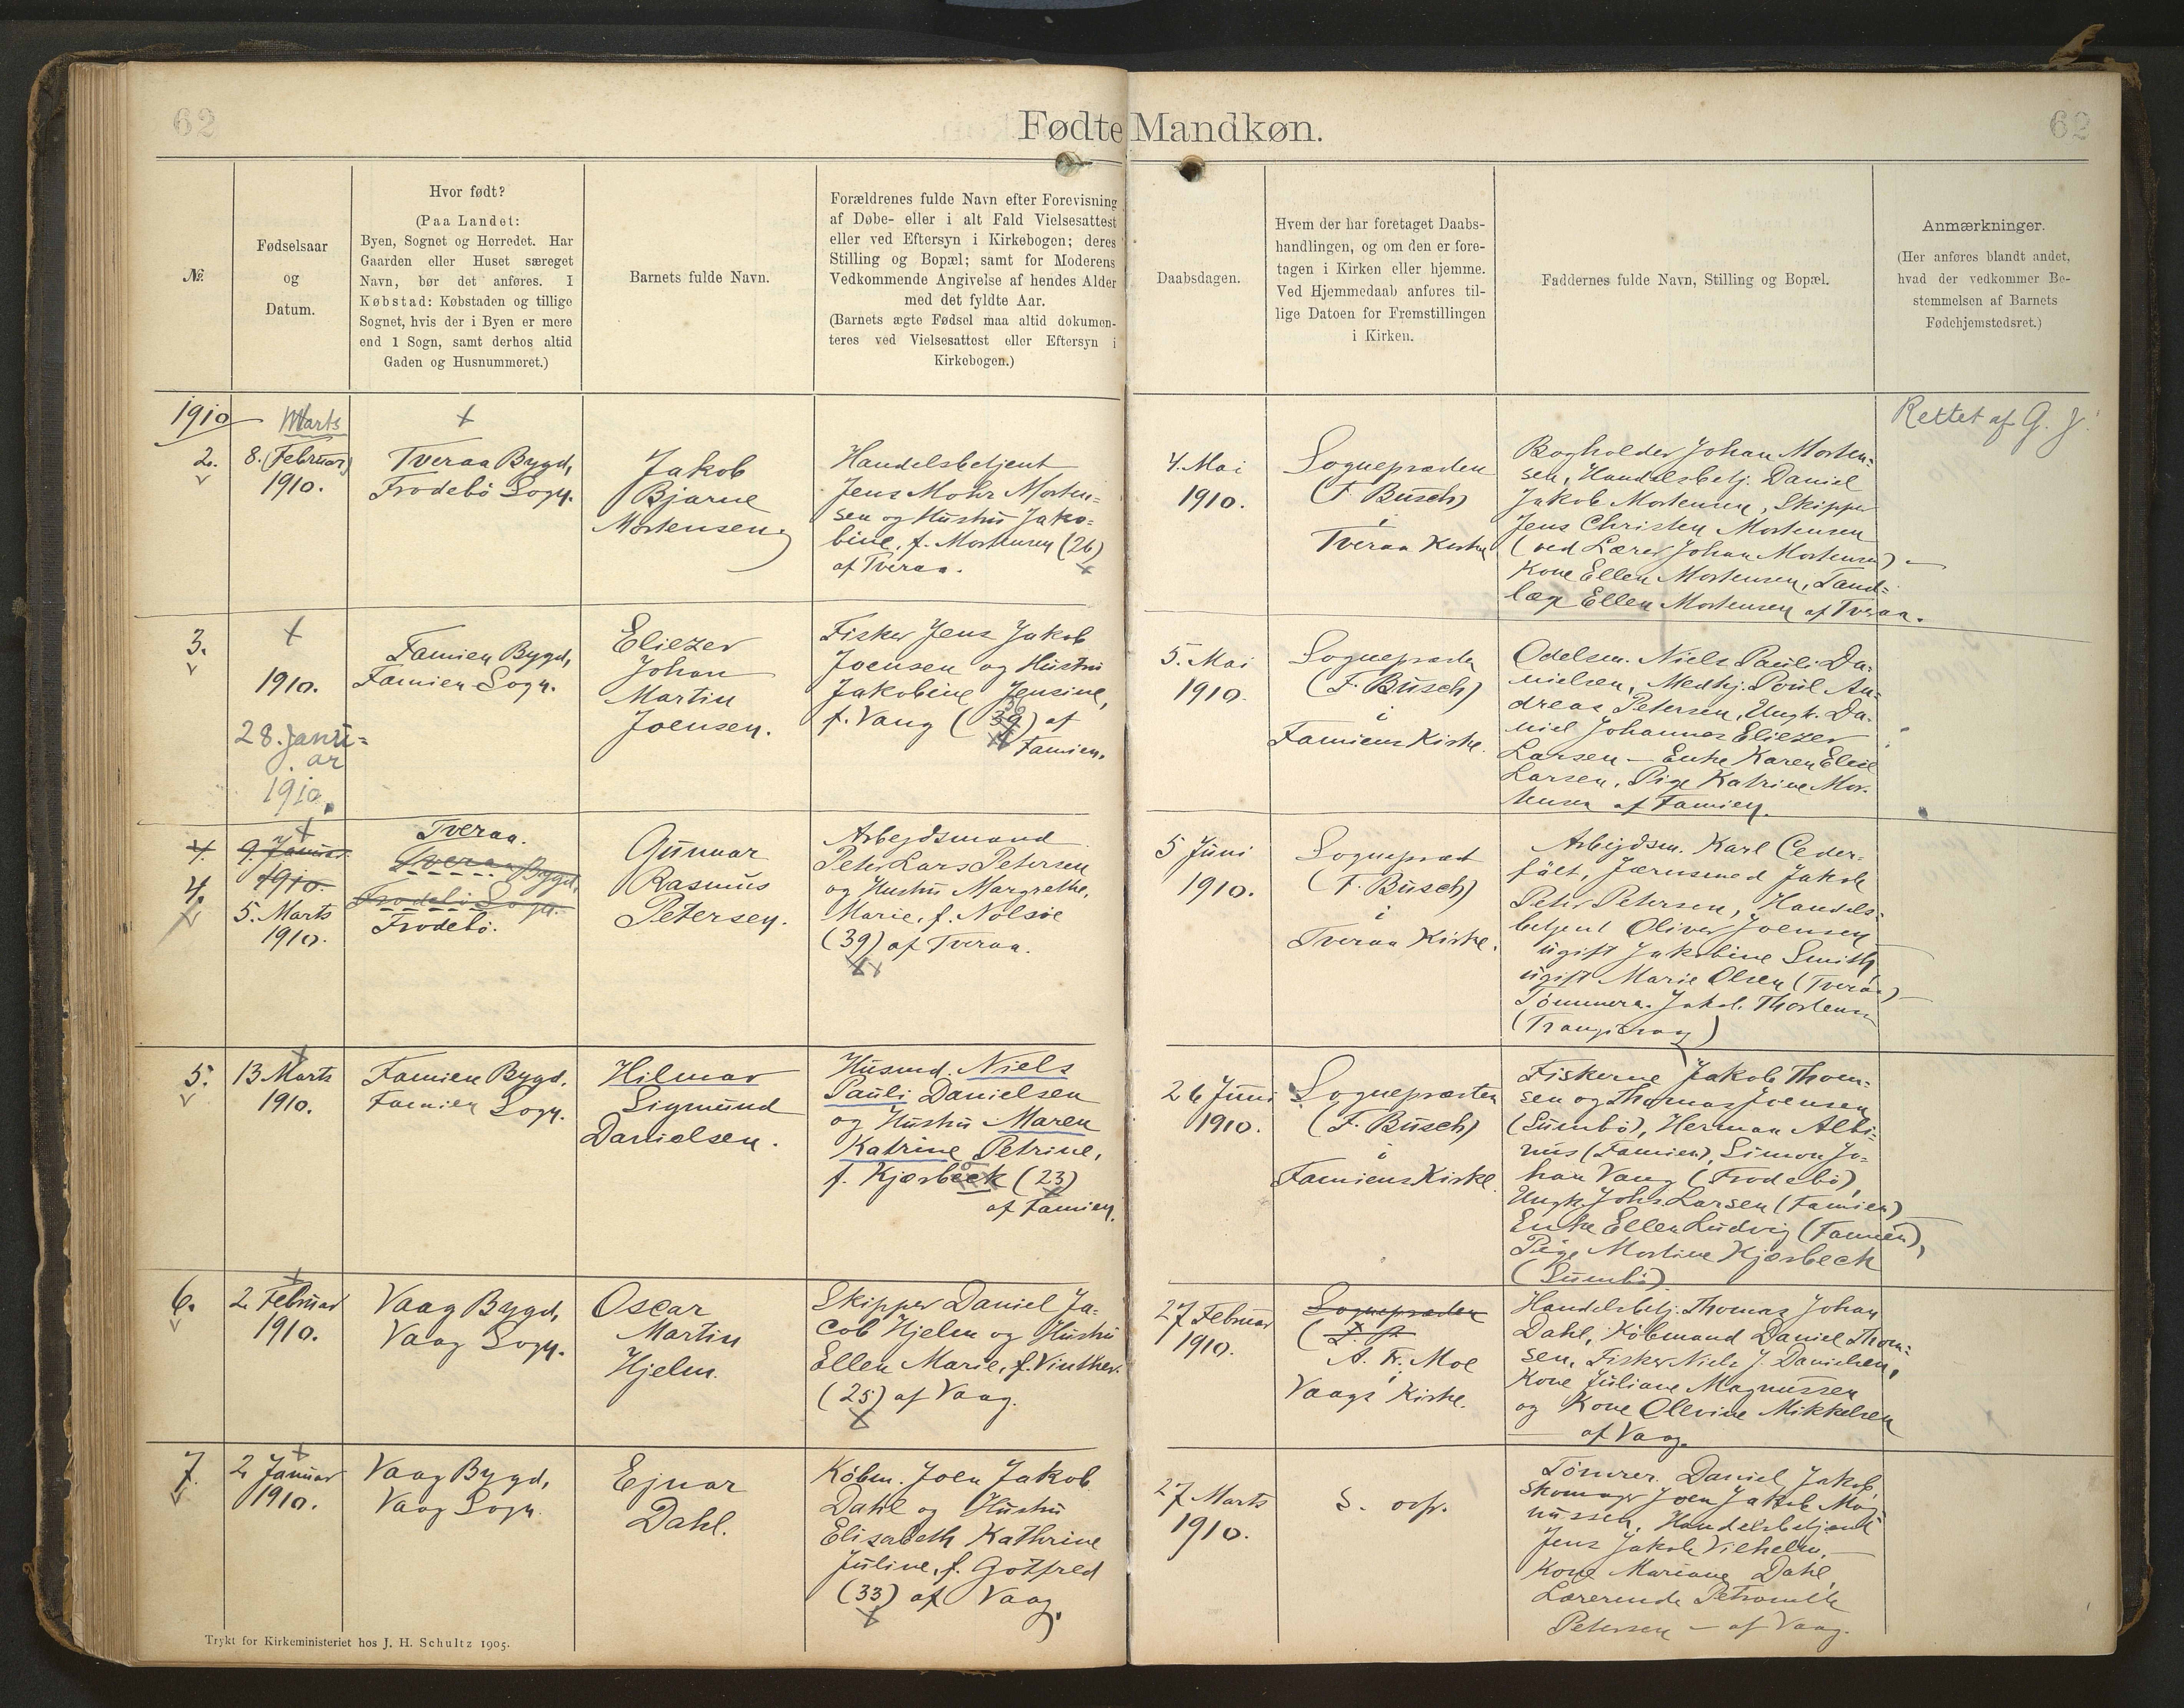 62
Fødte Mandkøn.
62
№.
Fødselsaar
og
Datum.
Hvor født?
(Paa Landet:
Byen, Sognet og Herredet. Har
Gaarden eller Huset særeget
Navn, bør det anføres. I
Købstad: Købstaden og tillige
Sognet, hvis der i Byen er mere
end 1 Sogn, samt derhos altid
Gaden og Husnummeret.)
Barnets fulde Navn.
Forældrenes fulde Navn efter Forevisning
af Døbe- eller i alt Fald Vielsesattest
eller ved Eftersyn i Kirkebogen; deres
Stilling og Bopæl; samt for Moderens
Vedkommende Angivelse af hendes Alder
med det fyldte Aar.
(Barnets ægte Fødsel maa altid dokumen-
teres ved Vielsesattest eller Eftersyn i
Kirkebogen.)
Daabsdagen.
Hvem der har foretaget Daabs-
handlingen, og om den er fore-
tagen i Kirken eller hjemme.
Ved Hjemmedaab anføres til-
lige Datoen for Fremstillingen
i Kirken.
Faddernes fulde Navn, Stilling og Bopæl.
Anmærkninger.
(Her anføres blandt andet,
hvad der vedkommer Be-
stemmelsen af Barnets
Fødehjemstedsret.)
1910
2.
Marts
8. (Februar)
1910.
Tveraa Bygd,
Frodebö Sogn.
Jakob
Bjarne
Mortensen
Handelsbetjent
Jens Mohr Morten-
sen og Hustru Jako-
bine, f. Mortensen (26)
af Tveraa.
4. Mai
1910.
Sognepræsten
(F. Busch)
i
Tveraa Kirke
Bogholder Johan Morten-
sen, Handelsbetj. Daniel
Jakob Mortensen, Skipper
Jens Christen Mortensen
(ved Lærer Johan Mortensen) —
Kone Ellen Mortensen, Tand-
læge Ellen Mortensen af Tveraa.
Rettet af G. J.
3.
1910.
28. Janu-
ar
1910.
Famien Bygd,
Famien Sogn.
Eliezer
Johan
Martin
Joensen.
Fisker Jens Jakob
Joensen og Hustru
Jakobine Jensine,
f. Vang (39) af
Famien.
5. Mai
1910.
Sognepræsten
(F. Busch)
i
Famiens Kirke.
Odelsm. Niels Pauli Da-
nielsen, Medhj. Poul An-
dreas Petersen, Ungk. Da-
niel Johannes Eliezer
Larsen — Enke Karen Elise
Larsen, Pige Katrine Mor-
tensen af Famien.
4.
4.
9. Januar
1910.
5. Marts
1910.
Tveraa.
Tveraa Bygd,
Frodebö Sogn.
Frodebö.
Gunnar
Rasmus
Petersen.
Arbejdsmand
Peter Lars Petersen
og Hustru Margrethe
Marie, f. Nolsöe
(39) af Tveraa.
5 Juni
1910.
Sognepræst
(F. Busch)
i
Tveraa Kirke.
Arbejdsm. Karl Ceder-
fält, Jærnsmed Jakob
Peter Petersen, Handels-
betjent Oliver Joensen
ugift Jakobine Smith
ugift Marie Olsen (Tveraa) —
Tömmerm. Jakob Thortensen
5.
13 Marts
1910.
Famien Bygd.
Famien Sogn.
Hilmar
Sigmund
Danielsen.
Husmd. Niels
Pauli Danielsen
og Hustru Maren
Katrine Petrine,
f. Kjærbeck (23)
af Famien.
26 Juni
1910.
Sognepræsten
(F. Busch)
i
Famiens Kirke.
Fiskerne Jakob Thom-
sen og Thomas Joensen
(Sumbö), Herman Albi-
nus (Famien), Simon Jo-
han Vang (Frodebö),
Ungk. Johs. Larsen (Famien) —
Enke Ellen Ludvig (Famien),
Pige Mortine Kjærbeck
(Sumbö)
6.
2 Februar
1910.
Vaag Bygd,
Vaag Sogn.
Oscar
Martin
Hjelm.
Skipper Daniel Ja-
cob Hjelm og Hustru
Ellen Marie, f. Vinther.
(25) af Vaag.
27 Februar
1910.
Sognepræsten
A. Fr. Moe
i
Vaags Kirke.
Handelsbetj. Thomas Johan
Dahl, Købmand Daniel Thom-
sen, Fisker Niels J. Danielsen,
Kone Juliane Magnussen
og Kone Olevine Mikkelsen
af Vaag.
7.
2 Januar
1910.
Vaag Bygd,
Vaag Sogn.
Ejnar
Dahl.
Købm. Joen Jakob
Dahl og Hustru
Elisabeth Kathrine
Juline, f. Gotfred
(33) af Vaag.
27 Marts
1910.
S. osp.
Tömrer. Daniel Jakob,
Skomager Joen Jakob Mag-
nussen, Handelsbetjent
Jens Jakob Vilhelm, —
Kone Mariane Dahl,
Lærerinde Petronelle
Petersen — af Vaag.
Trykt for Kirkeministeriet hos J. H. Schultz 1905.